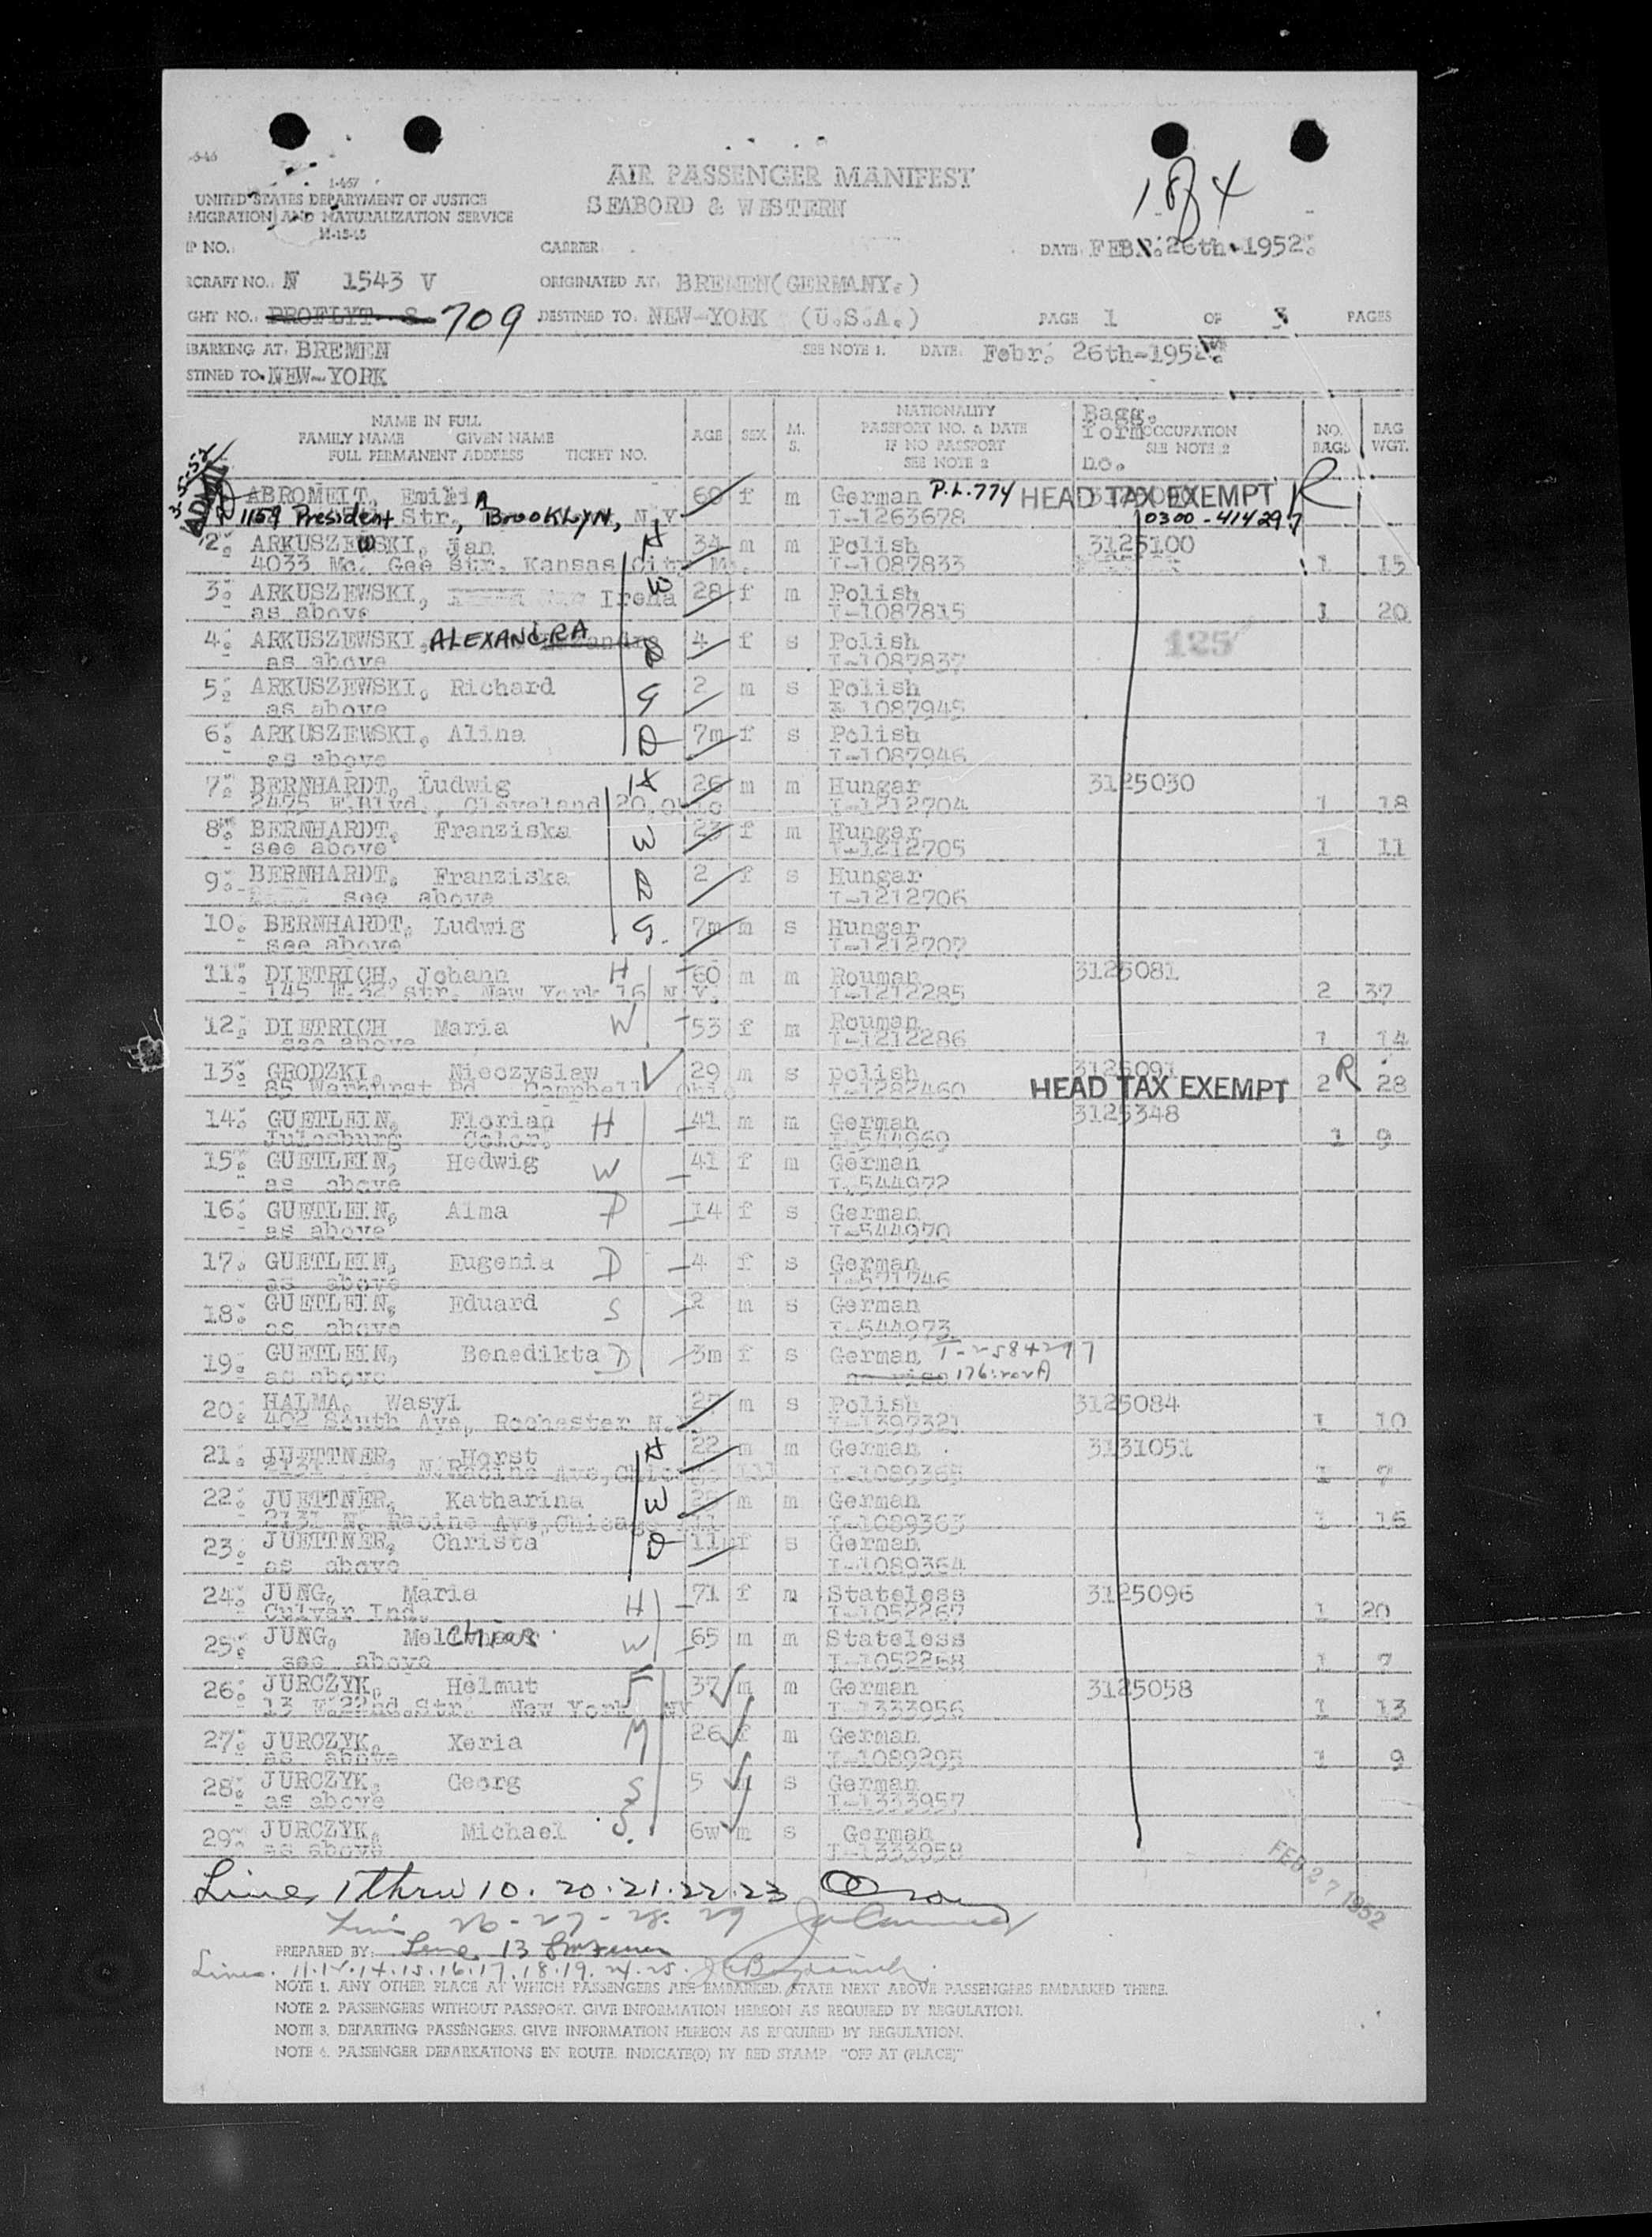 1 of 4
I-467
UNITED STATES DEPARTMENT OF JUSTICE
MIGRATION AND NATURALIZATION SERVICE
M-15-45
AIR PASSENGER MANIFEST
SEABORD & WESTERN
IP NO.
CARRIER
DATE FEBR. 26th-1952.
RCRAFT NO. N 1543 V
ORIGINATED AT. BREMEN(GERMANY.)
GHT NO. PROFLYT 8 709
DESTINED TO. NEW-YORK (U.S.A.)
PAGE 1 OF 3 PAGES
BARKING AT. BREMEN
SEE NOTE 1. DATE. Febr. 26th-1952.
STINED TO. NEW-YORK
NAME IN FULL
FAMILY NAME GIVEN NAME
FULL PERMANENT ADDRESS TICKET NO.
AGE SEX M. S.
NATIONALITY
PASSPORT NO. & DATE
IF NO PASSPORT
SEE NOTE 2
Bagg. form no. OCCUPATION
SEE NOTE 2
NO. BAGS BAG WGT.
ABROMEIT, EmiliA 60 f m German P.L.774 HEAD TAX EXEMPT R
1159 President Str., BROOKLYN, N.Y. I-1263678 0300-414297
2. ARKUSZEWSKI, Jan 34 m m Polish 3125100
4033 Mc. Gee Str. Kansas City Mo. I-1087833 1 15
3. ARKUSZEWSKI, Irena 28 f m Polish
as above I-1087815 1 20
4. ARKUSZEWSKI, ALEXANDRA 4 f s Polish 125
as above I-1087837
5. ARKUSZEWSKI, Richard 2 m s Polish
as above 1087945
6. ARKUSZEWSKI, Alina 7m f s Polish
as above I-1087946
7. BERNHARDT, Ludwig H 26 m m Hungar 3125030
2475 E.Blvd., Cleveland 20, Ohio I-1212704 1 18
8. BERNHARDT, Franziska W 23 f m Hungar
see above I-1212705 1 11
9. BERNHARDT, Franziska D 2 f s Hungar
see above I-1212706
10. BERNHARDT, Ludwig S. 7m m s Hungar
see above I-1212707
11. DIETRICH, Johann H 60 m m Rouman 3125081
145 E.32 str. New York 16 N.Y. I-1212285 2 37
12. DIETRICH Maria W 53 f m Rouman
see above I-1212286 1 14
13. GRODZKI, Mieczyslaw 29 m s polish 3125091
85 Warhurst Rd Campbell Ohio I-1282460 HEAD TAX EXEMPT 2 R 28
14. GUETLEIN, Florian H 41 m m German 3125348
Julesburg Color. I-544969 1 9
15. GUETLEIN, Hedwig W 41 f m German
as above I-544972
16. GUETLEIN, Alma D 14 f s German
as above I-544970
17. GUETLEIN, Eugenia D 4 f s German
as above I-571746
18. GUETLEIN, Eduard S 2 m s German
as above I-544973
19. GUETLEIN, Benedikta D 3m f s German T-2584297
as above no visa
20. HALMA, Wasyl 27 m s Polish 3125084
402 South Ave, Rochester N.Y. I-1397321 1 10
21. JUETTNER, Horst H 22 m m German 3131051
2131 N.Racine Ave,Chicago Ill I-1089365 1 7
22. JUETTNER, Katharina W 25 m m German
2131 N. Racine Ave,Chicago Ill I-1089363 1 16
23. JUETTNER, Christa D 11m f s German
as above I-1089364
24. JUNG, Maria H 71 f m Stateless 3125096
Culver Ind. I-1052267 1 20
25. JUNG, MelCHIOR W 65 m m Stateless
see above I-1052268 1 7
26. JURCZYK, Helmut F 37 m m German 3125058
13 E.22nd.Str. New York, NY I-1333956 1 13
27. JURCZYK, Xeria M 26 f m German
as above I-1089295 1 9
28. JURCZYK, Georg S 5 m s German
as above I-1333957
29. JURCZYK, Michael S. 6w m s German
as above I-1333958
FEB 27 1952
Line, 1 thru 10. 20.21.22.23
Line 26-27-28. 29
PREPARED BY: Line 13
Lines. 11.12.14.15.16.17.18.19.24.25.
NOTE 1. ANY OTHER PLACE AT WHICH PASSENGERS ARE EMBARKED. STATE NEXT ABOVE PASSENGERS EMBARKED THERE.
NOTE 2. PASSENGERS WITHOUT PASSPORT. GIVE INFORMATION HEREON AS REQUIRED BY REGULATION.
NOTE 3. DEPARTING PASSENGERS. GIVE INFORMATION HEREON AS REQUIRED BY REGULATION.
NOTE 4. PASSENGER DEBARKATIONS EN ROUTE. INDICATE(D) BY RED STAMP "OFF AT (PLACE)"